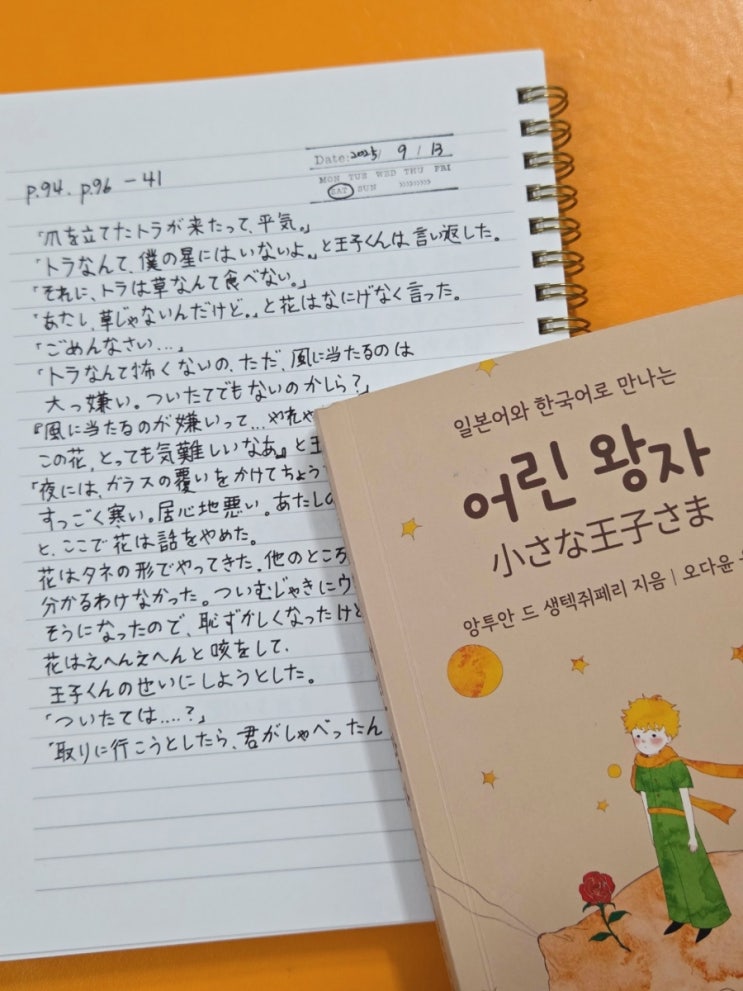 p.94. p.96 - 41
Date: 2025/ 9 / 13
MON TUE WED THU FRI
SAT SUN
「爪を立てたトラが来たって、平気。」
「トラなんて、僕の星にはいないよ。」と王子くんは言い返した。
「それに、トラは草なんて食べない。」
「あたし、草じゃないんだけど。」と花はなにげなく言った。
「ごめんなさい...」
「トラなんて怖くないの、ただ、風に当たるのは
大っ嫌い。ついたてでもないのかしら?」
『風に当たるのが嫌いって...やれや
この花、とっても気難しいなあ』と王
「夜には、ガラスの覆いをかけてちょう
すっごく寒い。居心地悪い。あたしの
と、ここで花は話をやめた。
花はタネの形でやってきた。他のところ
分かるわけなかった。ついむじゃきにウ
そうになったので、恥ずかしくなったけど
花はえへんえへんと咳をして、
王子くんのせいにしようとした。
「ついたては....?」
「取りに行こうとしたら、君がしゃべったん
일본어와 한국어로 만나는
어린 왕자
小さな王子さま
앙투안 드 생텍쥐페리 지음 | 오다윤